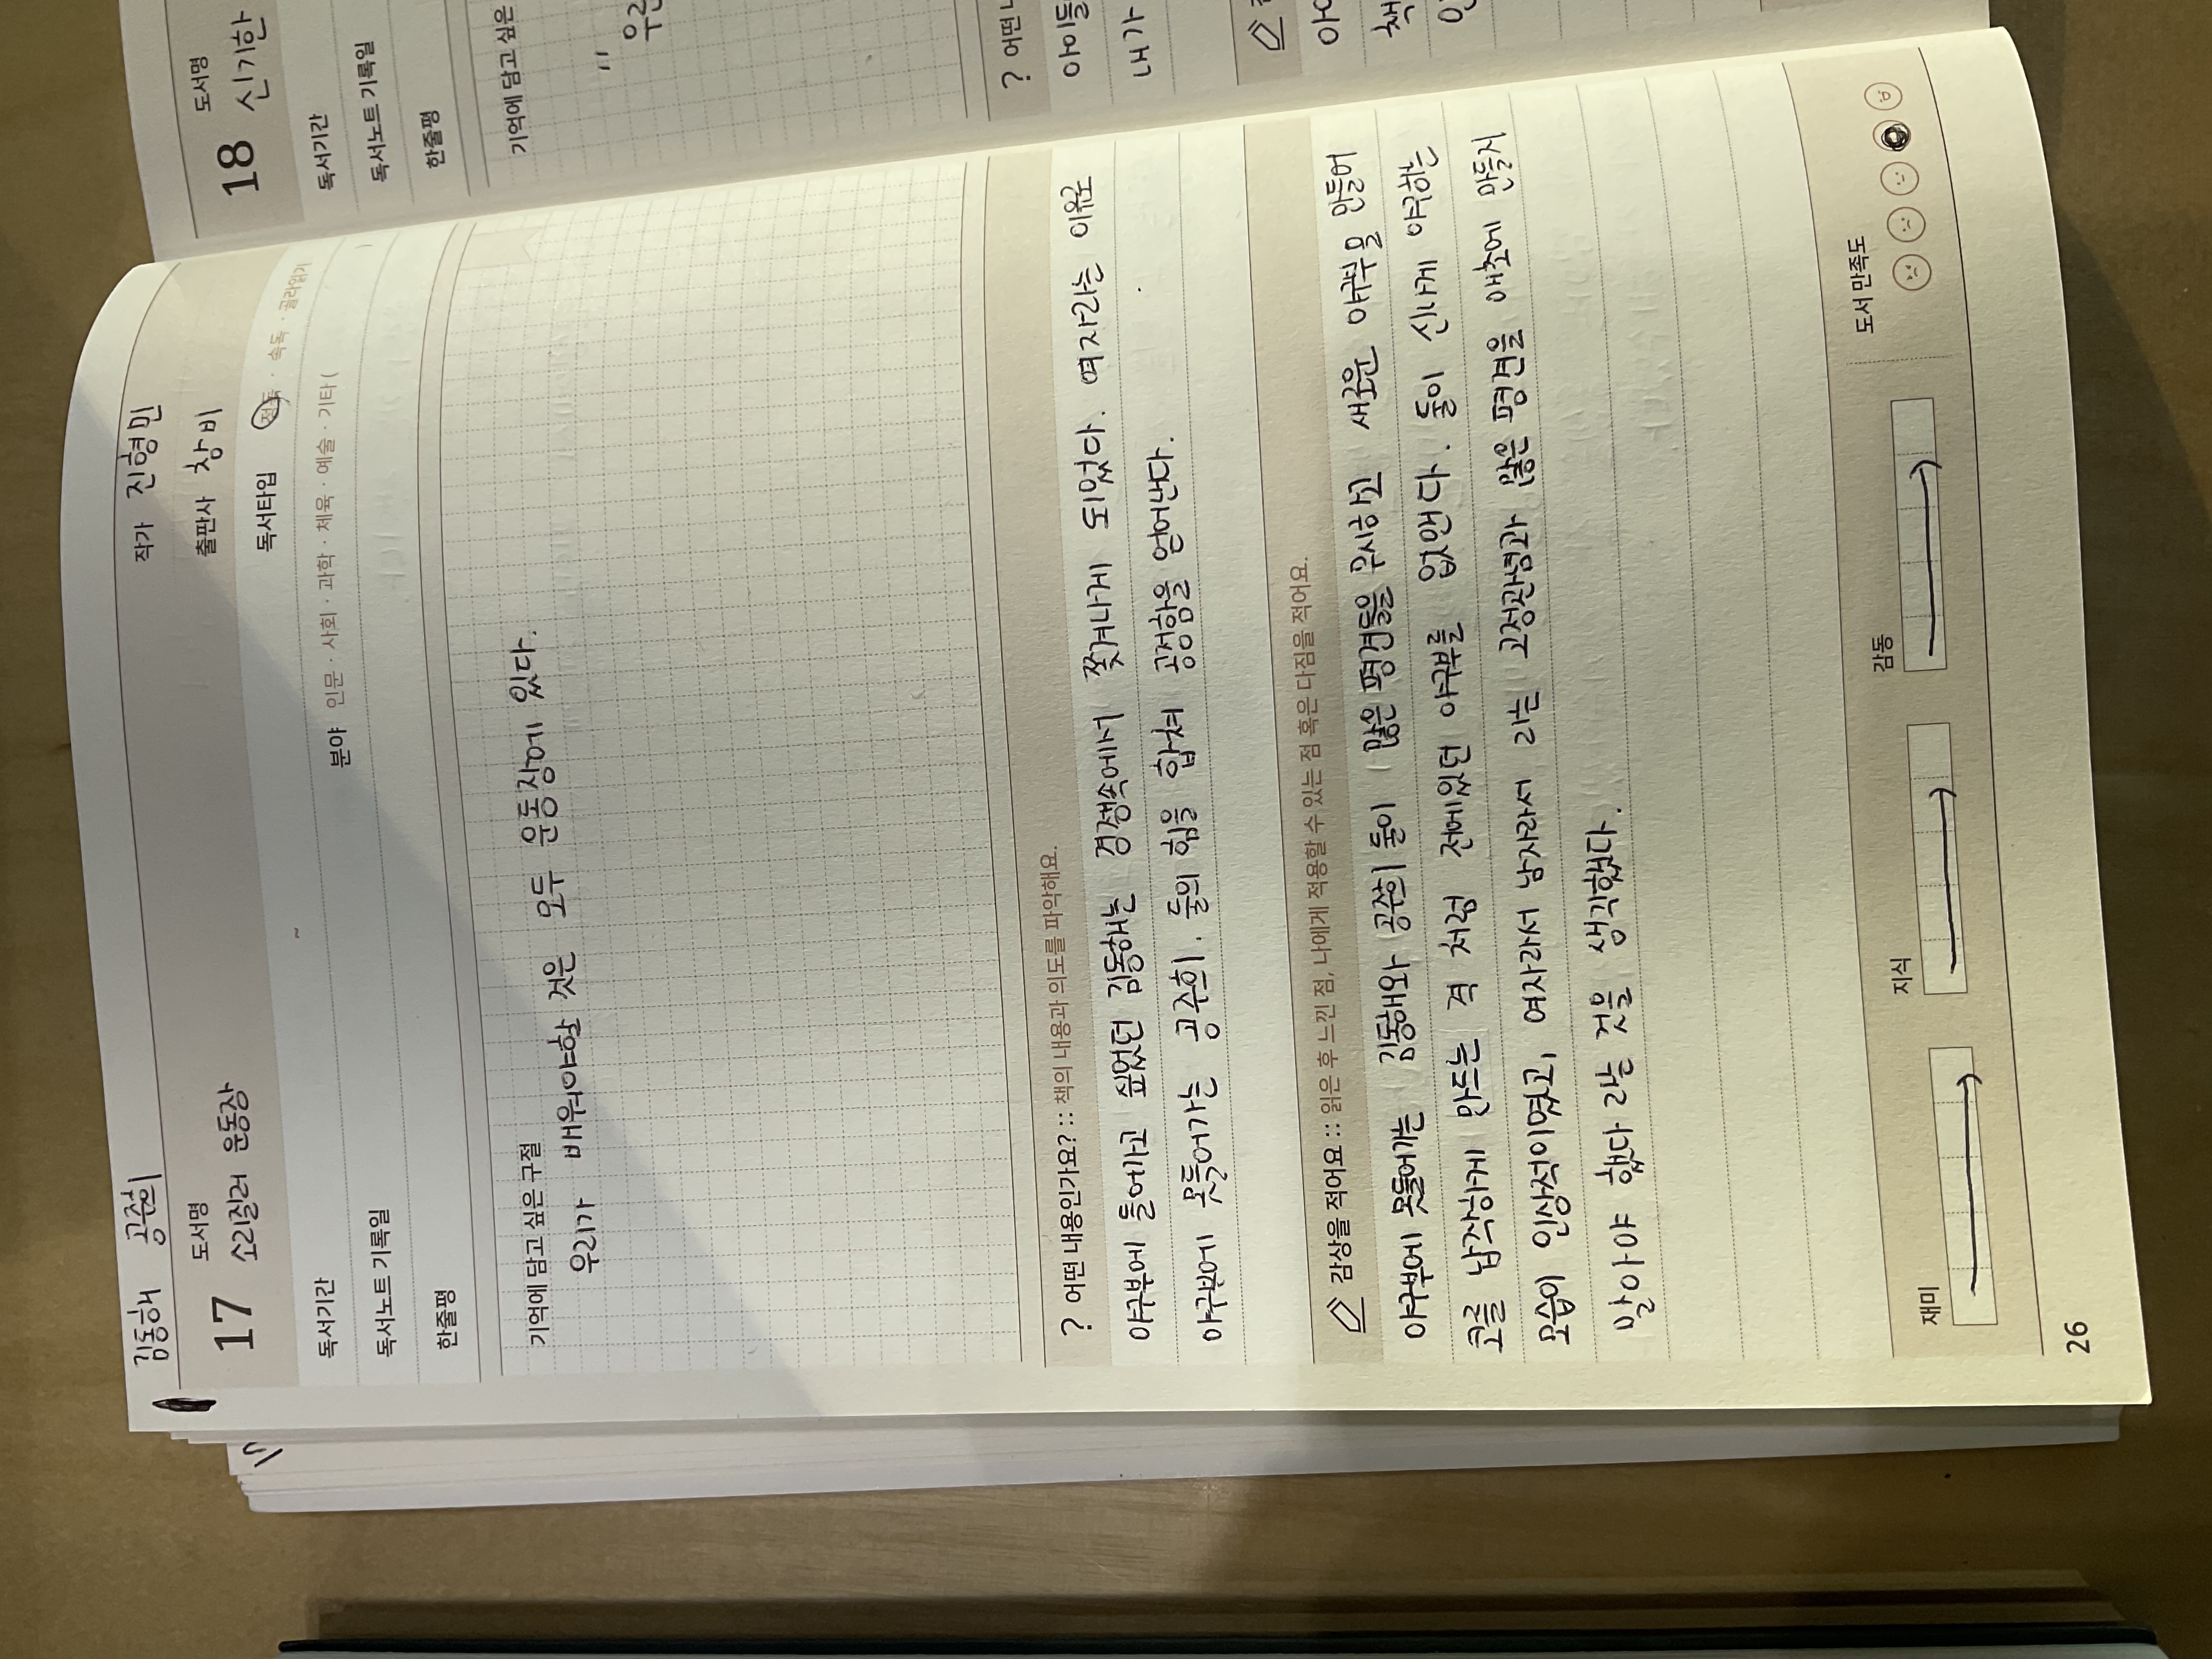 김동해 공주희
17 도서명 소리질러 운동장 작가 진형민
출판사 창비
독서기간 ~ 독서타입 정독 · 속독 · 골라읽기
독서노트 기록일 분야 인문 · 사회 · 과학 · 체육 · 예술 · 기타 (
한줄평
기억에 담고 싶은 구절
우리가 배워야할 것은 모두 운동장에 있다.
? 어떤 내용인가요? :: 책의 내용과 의도를 파악해요.
야구부에 들어가고 싶었던 김동해는 경쟁속에서 쫓겨나게 되었다. 여자라는 이유로
야구부에 못들어가는 공주희. 둘의 힘을 합쳐 공정함을 얻어낸다.
감상을 적어요 :: 읽은 후 느낀 점, 나에게 적용할 수 있는 점 혹은 다짐을 적어요.
야구부에 못들어가는 김동해와 공주희 둘이 많은 평견들을 무시하고 새로운 야구부을 만들어
코를 납작하게 만드는 격 처럼 전에있던 야구부를 없앤다. 둘이 신나게 야구하는
모습이 인상적이였고, 여자라서 남자라서 라는 고정관념과 많은 평견을 애초에 만들지
말아야 했다 라는 것을 생각했다.
재미 지식 감동 도서 만족도
26
18 도서명 신기한
독서기간
독서노트 기록일
한줄평
기억에 담고 싶은
"
? 어떤
아이들
내가
책